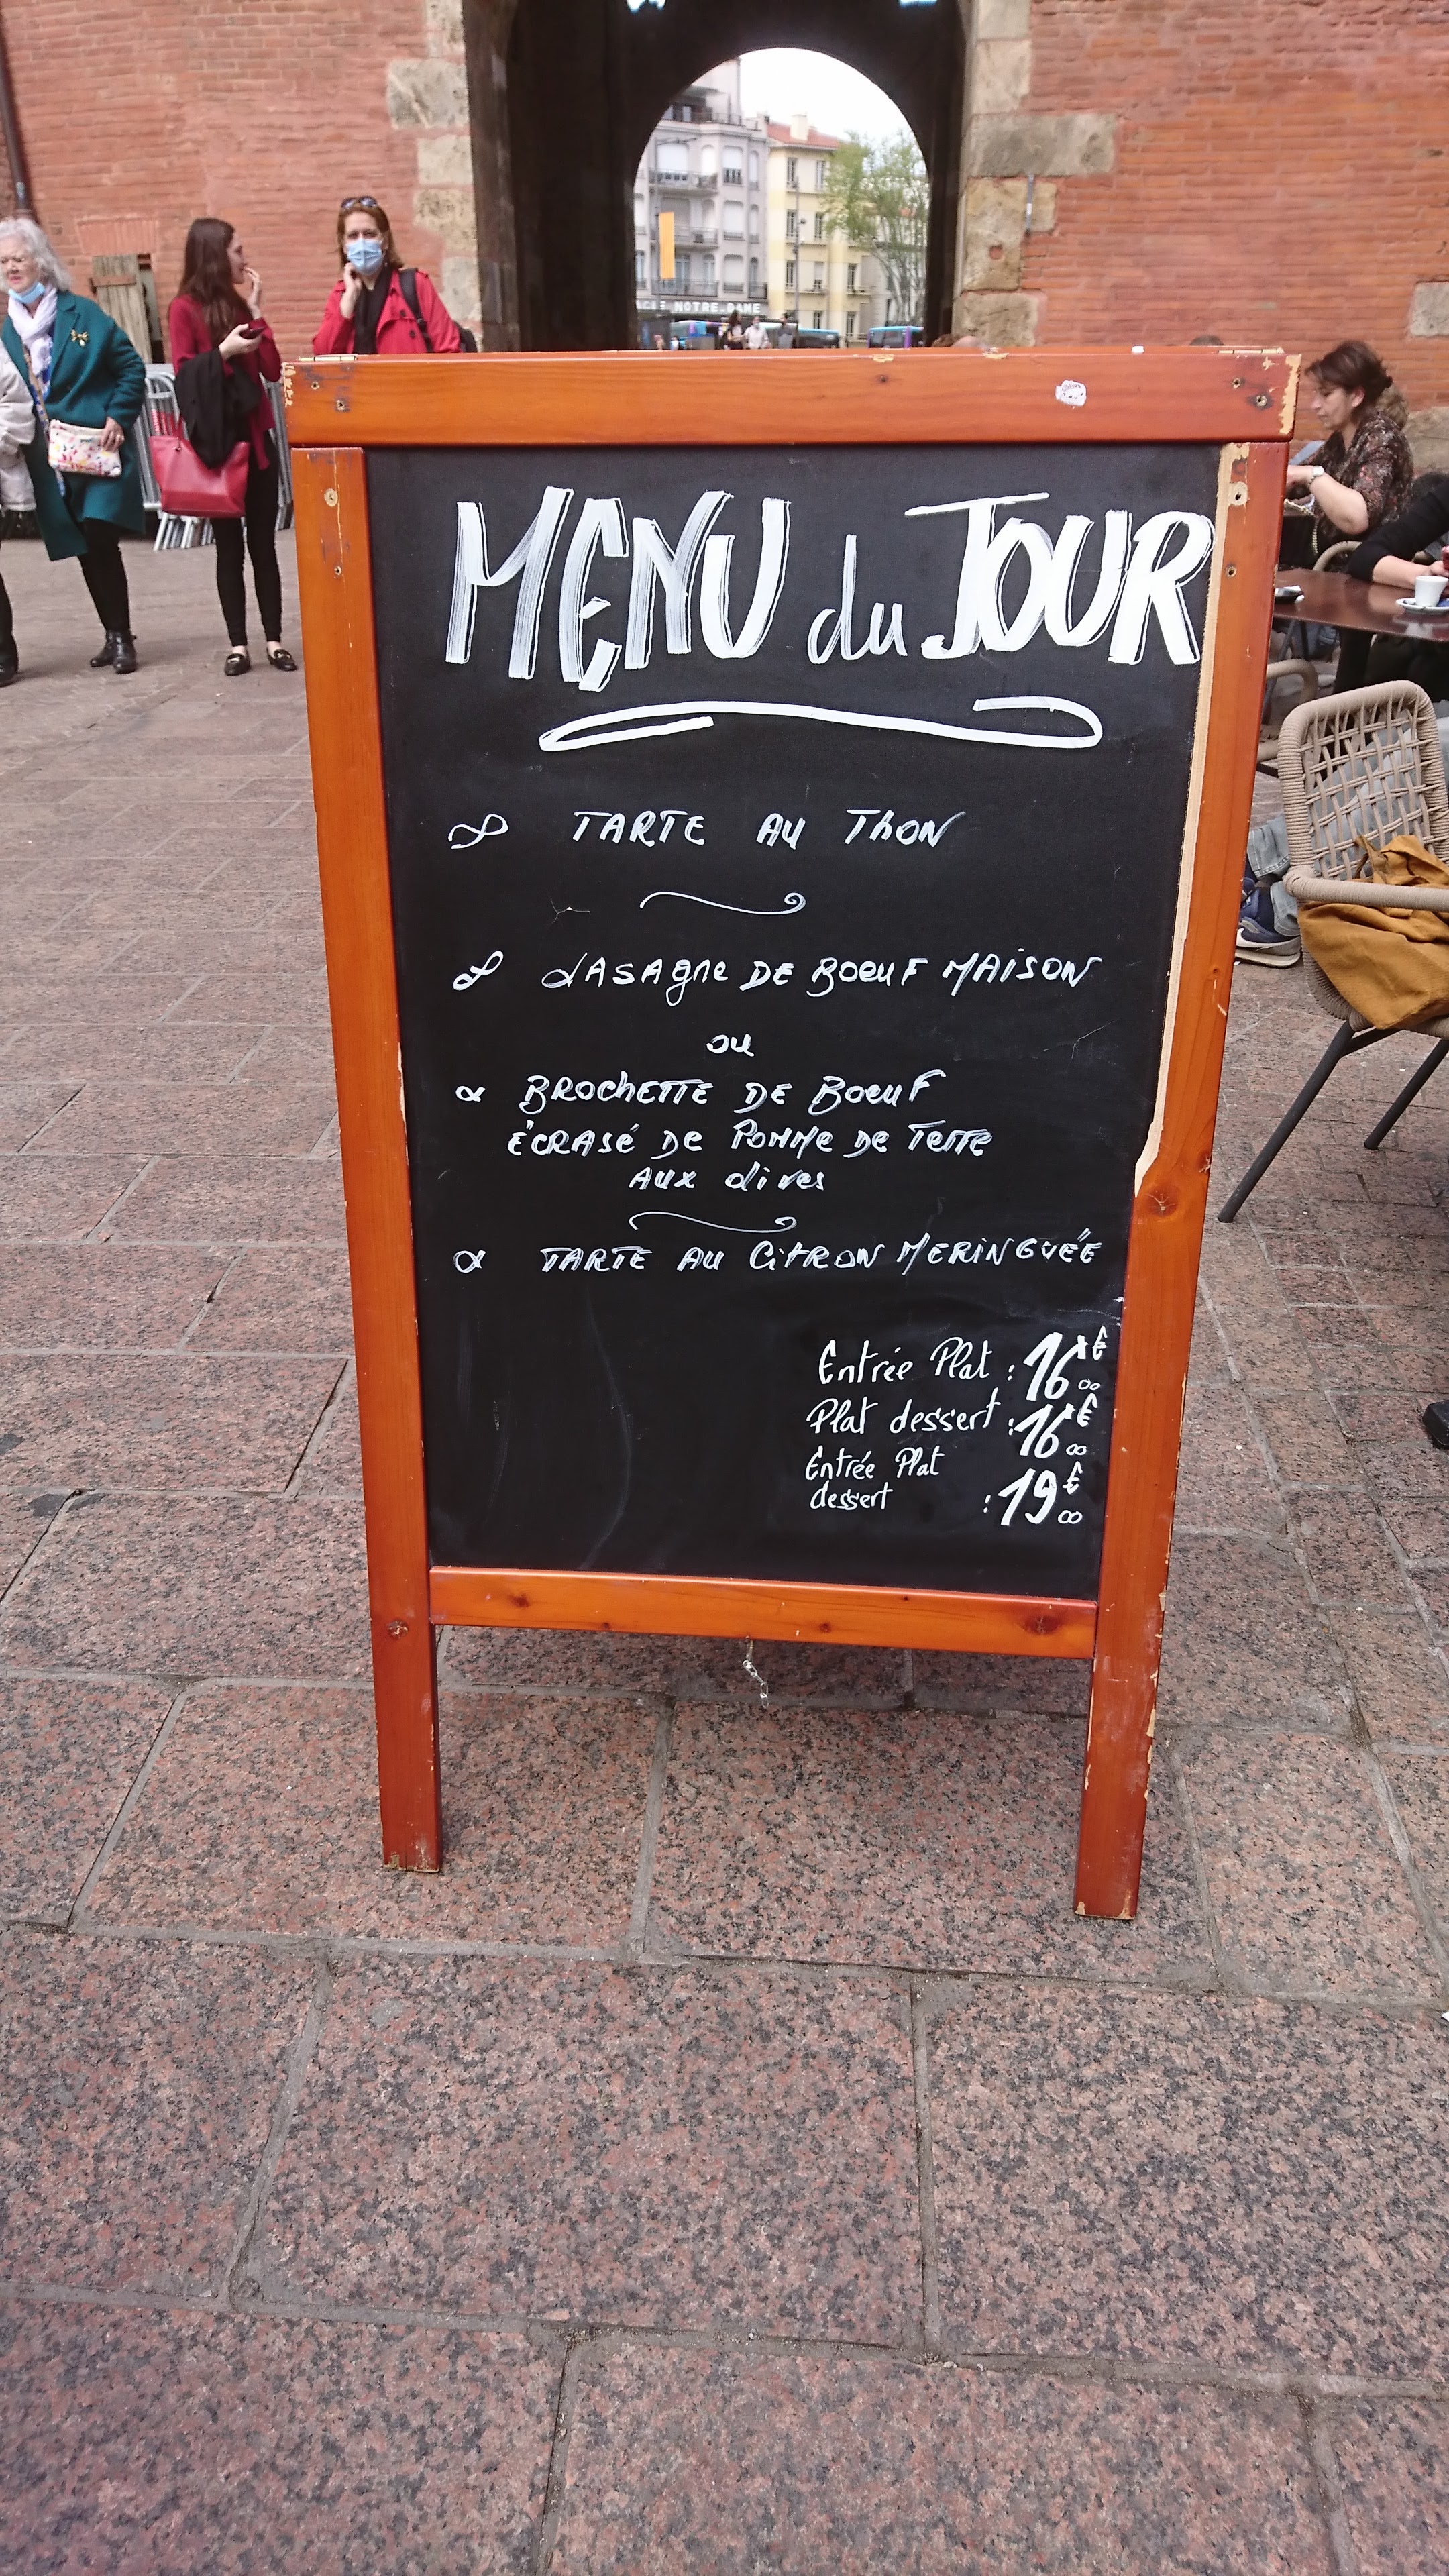 NOTRE-DAME
MENU du JOUR
TARTE AU ThON
LASAgne DE BOEUF MAiSON
ou
BROchETTE DE BOEUF
ÉCRASÉ DE POMME DE TERRE
AUX olives
TARTE AU CiTRON MERiNGUÉE
Entrée Plat : 16€00
Plat dessert : 16€00
Entrée Plat
dessert : 19€00